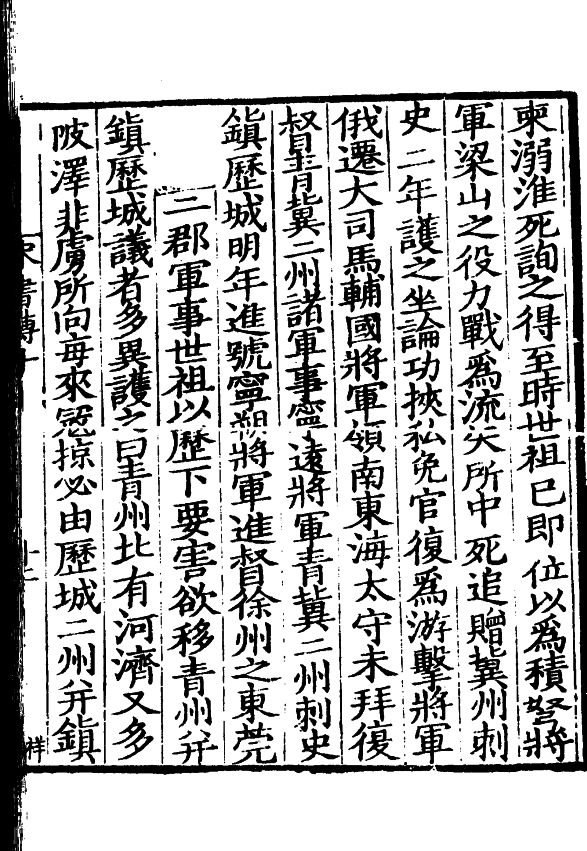 東溺淮死詢之得至時世祖已即位以爲積弩將
軍梁山之役力戰爲流矢所中死追贈冀州刺
史二年護之坐論功挾私免官復爲游擊將軍
俄遷大司馬輔國將軍領南東海太守未拜復
督青冀二州諸軍事寧遠將軍青冀二州刺史
鎮歷城明年進號寧朔將軍進督徐州之東莞
二郡軍事世祖以歷下要害欲移青州并
鎮歷城議者多異護之曰青州北有河濟又多
陂澤非虜所向每來寇掠必由歷城二州并鎮
祥